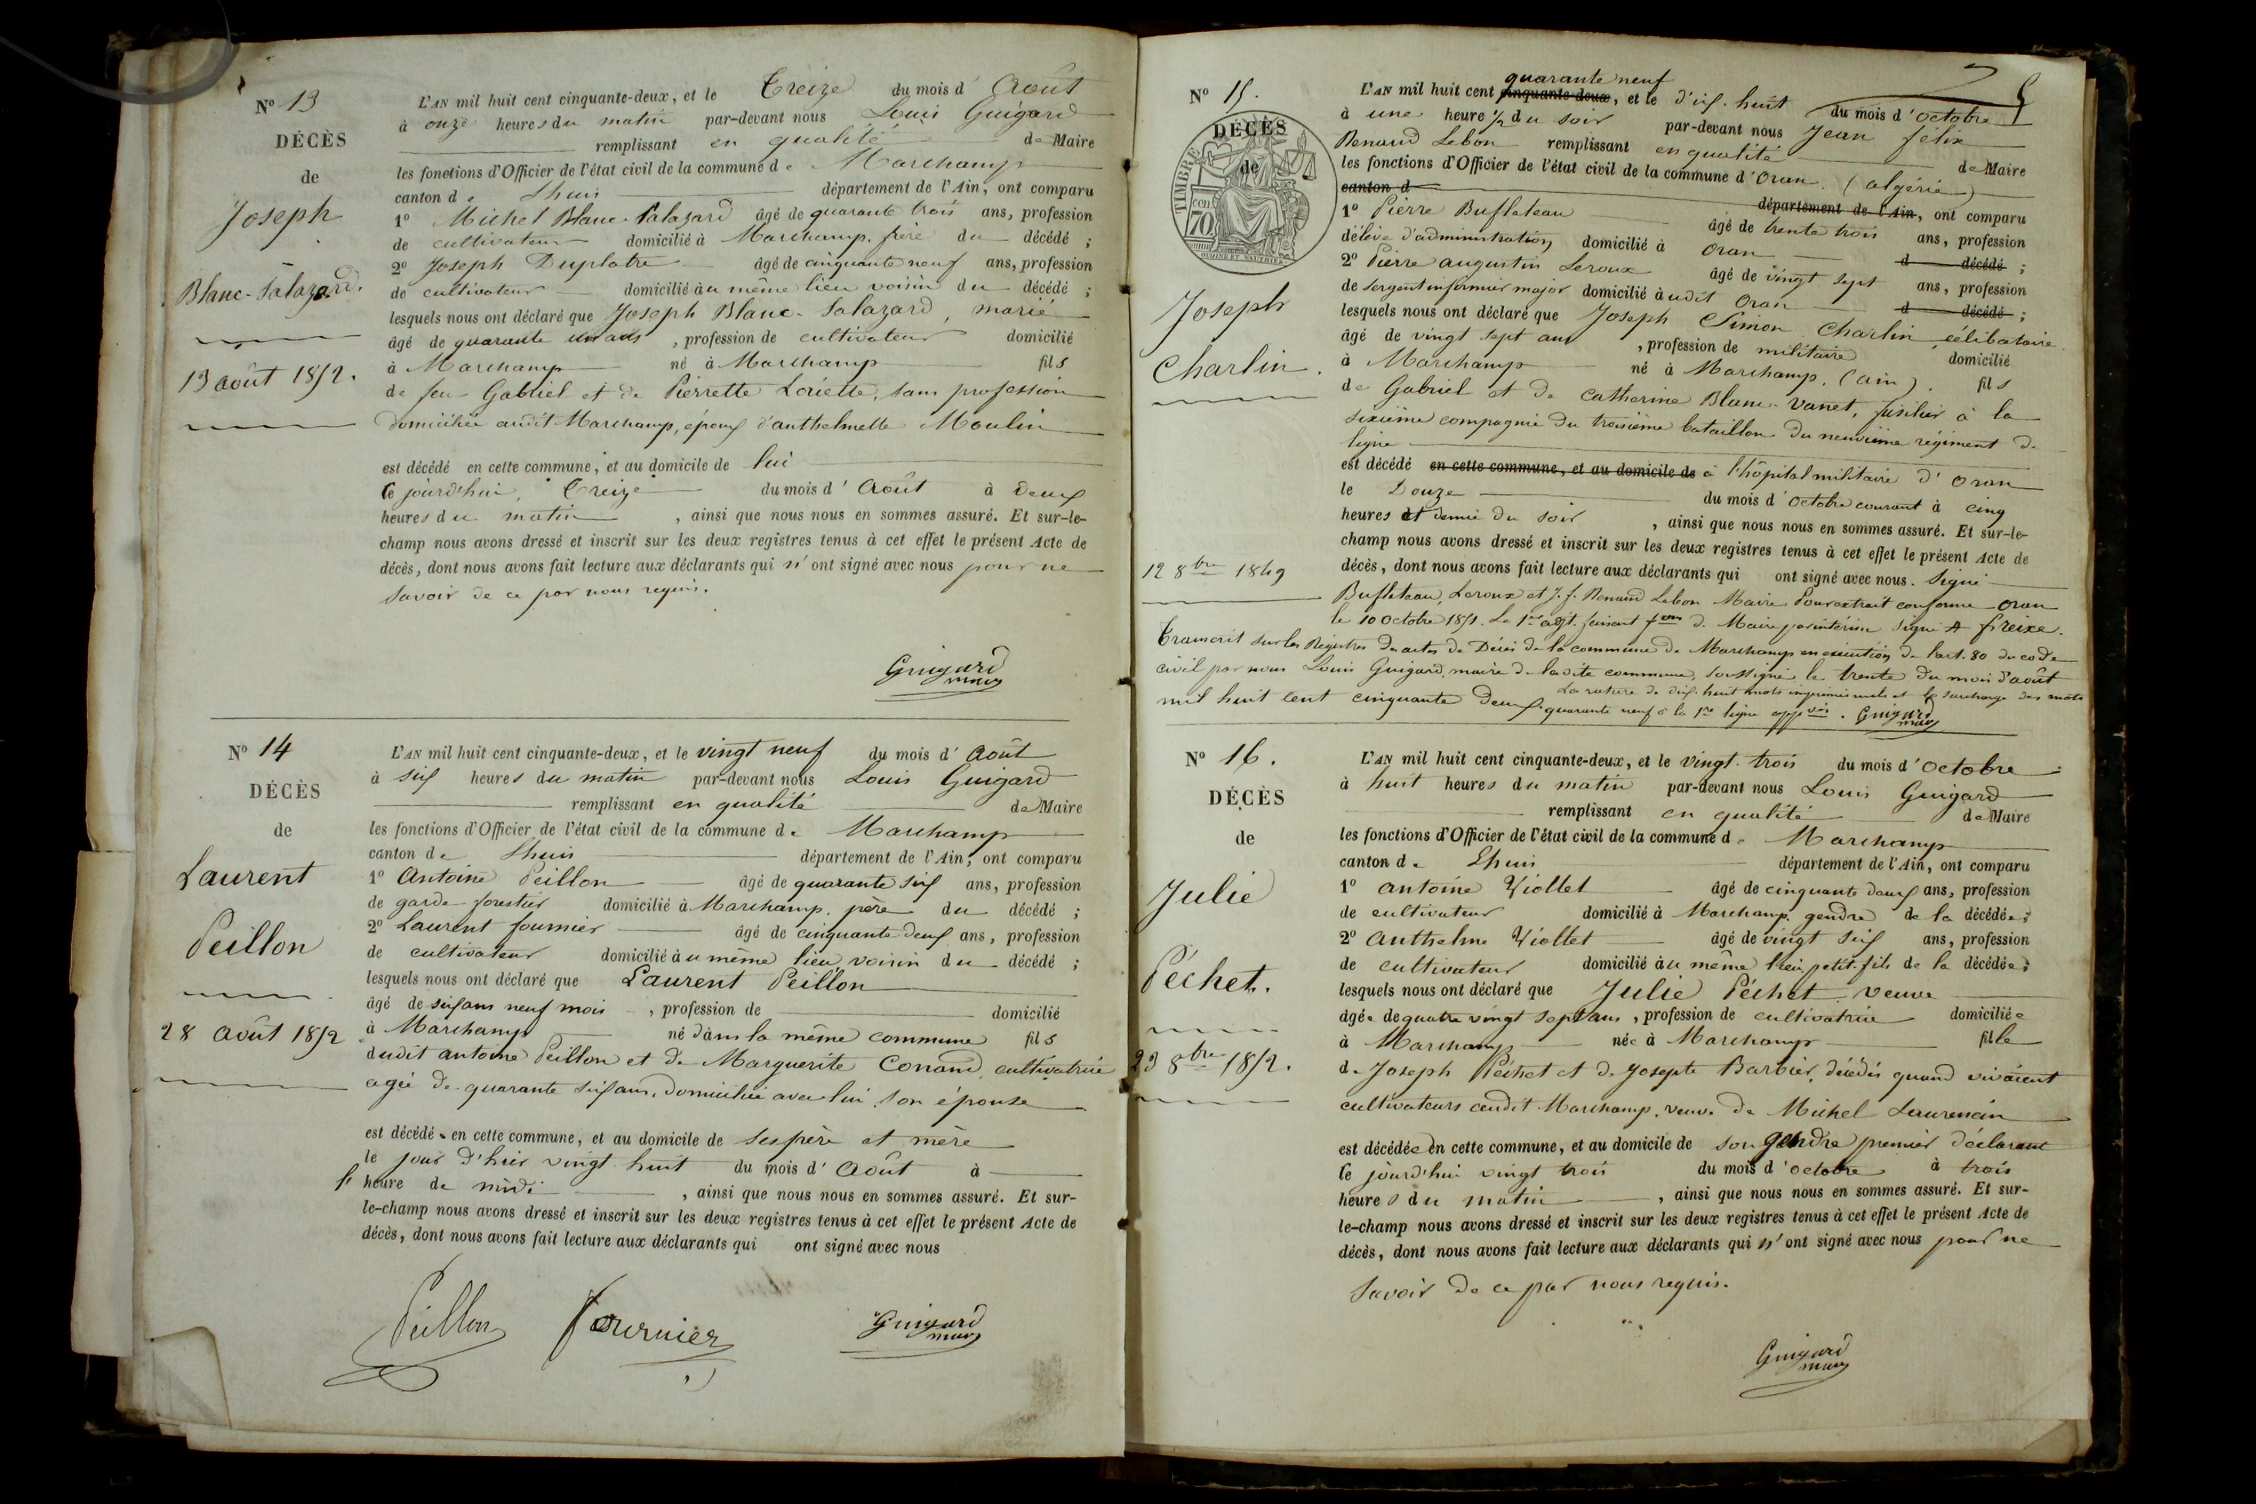 N° 13
DÉCÈS
de
Joseph
Blanc-Salazard.
13 août 1852.
L'AN mil huit cent cinquante-deux, et le Treize du mois d' Août
à onze heures du matin par-devant nous Louis Guigard
remplissant en qualité de Maire
les fonctions d'Officier de l'état civil de la commune de Marchamp
canton de Lhuis département de l'Ain, ont comparu
1° Michel Blanc-Salazard âgé de quarante trois ans, profession
de cultivateur domicilié à Marchamp, frère du décédé ;
2° Joseph Duplatre âgé de cinquante neuf ans, profession
de cultivateur domicilié au même lieu voisin du décédé ;
lesquels nous ont déclaré que Joseph Blanc-Salazard, marié
âgé de quarante un ans , profession de cultivateur domicilié
à Marchamp né à Marchamp fils
de feu Gabriel et de Pierrette Loriette, sans profession
domiciliée audit Marchamp, époux d'anthelmette Moulin
est décédé en cette commune, et au domicile de lui
Ce jourd'hui, Treize du mois d' Août à deux
heures du matin , ainsi que nous nous en sommes assuré. Et sur-le-
champ nous avons dressé et inscrit sur les deux registres tenus à cet effet le présent Acte de
décès, dont nous avons fait lecture aux déclarants qui n' ont signé avec nous pour ne
savoir de ce par nous requis.
Guigard
maire
N° 14
DÉCÈS
de
Laurent
Peillon
28 août 1852
L'AN mil huit cent cinquante-deux, et le vingt neuf du mois d' Août
à six heures du matin par-devant nous Louis Guigard
remplissant en qualité de Maire
les fonctions d'Officier de l'état civil de la commune de Marchamp
canton de Lhuis département de l'Ain, ont comparu
1° Antoine Peillon âgé de quarante six ans, profession
de garde forestier domicilié à Marchamp, père du décédé ;
2° Laurent fournier âgé de cinquante deux ans, profession
de cultivateur domicilié au même lieu voisin du décédé ;
lesquels nous ont déclaré que Laurent Peillon
âgé de six ans neuf mois , profession de domicilié
à Marchamp né dans la même commune fils
dudit antoine Peillon et de Marguerite Conand, cultivatrice
agée de quarante six ans, domiciliée avec lui, son épouse
est décédé en cette commune, et au domicile de ses père et mère
le jour d'hier vingt huit du mois d' Août à
l' heure de midi , ainsi que nous nous en sommes assuré. Et sur-
le-champ nous avons dressé et inscrit sur les deux registres tenus à cet effet le présent Acte de
décès, dont nous avons fait lecture aux déclarants qui ont signé avec nous
Peillon Fournier Guigard
maire
N° 15.
DÉCÈS
de
TIMBRE
cen
70
Joseph
Charlin.
12 8bre 1849
quarante neuf
L'AN mil huit cent cinquante-deux, et le dix-huit du mois d' octobre
à une heure ½ du soir par-devant nous Jean félix
Renaud Lebon remplissant en qualité de Maire
les fonctions d'Officier de l'état civil de la commune d' Oran (algérie)
canton d département de l'Ain, ont comparu
1° Pierre Bufleteau âgé de trente trois ans, profession
d'élève d'administration domicilié à Oran d décédé ;
2° Pierre augustin Leroux âgé de vingt sept ans, profession
de sergent infirmier major domicilié audit Oran d décédé ;
lesquels nous ont déclaré que Joseph Simon Charlin célibataire
âgé de vingt sept ans , profession de militaire domicilié
à Marchamp né à Marchamp, (ain) fils
de Gabriel et de catherine Blanc-Vanet, fusilier à la
sixième compagnie du troisième bataillon du neuvième régiment de
ligne
est décédé en cette commune, et au domicile de à l'hôpital militaire d' Oran
le Douze du mois d' octobre courant à cinq
heures et demie du soir , ainsi que nous nous en sommes assuré. Et sur-le-
champ nous avons dressé et inscrit sur les deux registres tenus à cet effet le présent Acte de
décès, dont nous avons fait lecture aux déclarants qui ont signé avec nous. Signé
Bufleteau, Leroux et J. f. Renaud Lebon Maire Pour extrait conforme Oran
le 10 Octobre 1851. Le 1er adjt. faisant fons de Maire par intérim signé A freixe.
Transcrit sur les Régistres des actes de Décès de la commune de Marchamp en exécution de l'art. 80 du code
civil par nous Louis Guigard, maire de ladite commune, soussigné le trente du mois d'août
mil huit cent cinquante deux. La rature de dix-huit mots imprimés nuls et la surcharge des mots
quarante neuf à la 1re ligne appvés. Guigard
maire
N° 16.
DÉCÈS
de
Julie
Péchet.
23 8bre 1852.
L'AN mil huit cent cinquante-deux, et le vingt-trois du mois d' octobre
à huit heures du matin par-devant nous Louis Guigard
remplissant en qualité de Maire
les fonctions d'Officier de l'état civil de la commune de Marchamp
canton de Lhuis département de l'Ain, ont comparu
1° antoine Viollet âgé de cinquante deux ans, profession
de cultivateur domicilié à Marchamp, gendre de la décédée ;
2° Anthelme Viollet âgé de vingt six ans, profession
de cultivateur domicilié au même lieu, petit-fils de la décédée ;
lesquels nous ont déclaré que Julie Péchet, veuve
âgée de quatre vingt sept ans , profession de cultivatrice domiciliée
à Marchamp née à Marchamp fille
de Joseph Péchet et de Josepte Barbier, décédés quand vivaient
cultivateurs audit Marchamp, veuve de Michel Laurencin
est décédée en cette commune, et au domicile de son gendre premier déclarant
Ce jourd'hui vingt trois du mois d' octobre à trois
heures du matin , ainsi que nous nous en sommes assuré. Et sur-
le-champ nous avons dressé et inscrit sur les deux registres tenus à cet effet le présent Acte de
décès, dont nous avons fait lecture aux déclarants qui n' ont signé avec nous pour ne
savoir de ce par nous requis.
Guigard
maire